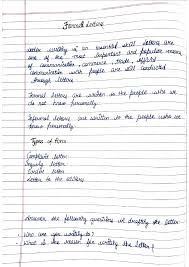 Formal Letters
Letter writing is an essential skill. Letters are
one of the most important and popular means
of communication, commerce, trade, official
communication with people are still conducted
through letters
Formal letters are written to the people who we
do not know personally.
Informal letters are written to the people who we
know personally.
Types of form
Complaint letter
Inquiry letter
letter
Letter to the editor
the following questions draftly the letter
• Who are you writing to?
• What is the reason for writing the letter?